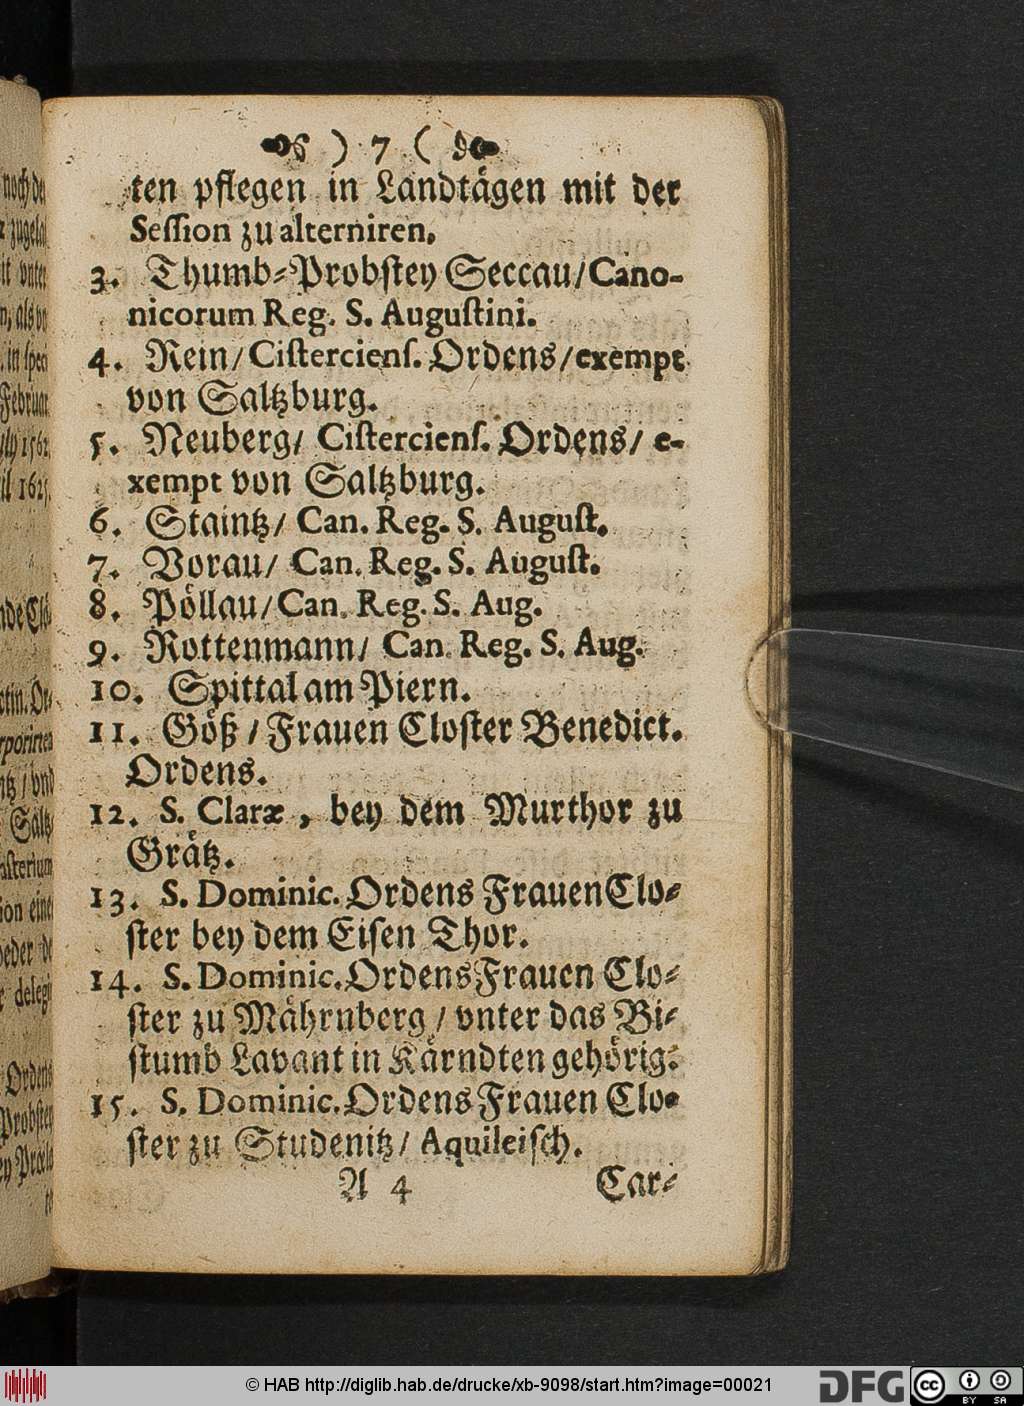 ) 7 (
ten pflegen in Landtägen mit der
Session zu alterniren.
3. Thumb-Probstey Seccau/ Cano-
nicorum Reg. S. Augustini.
4. Rein/ Cisterciens. Ordens/ exempt
von Saltzburg.
5. Neuberg/ Cisterciens. Ordens/ e-
xempt von Saltzburg.
6. Staintz/ Can. Reg. S. August.
7. Vorau/ Can. Reg. S. August.
8. Pöllau/ Can. Reg. S. Aug.
9. Rottenmann/ Can. Reg. S. Aug.
10. Spittal am Piern.
11. Göß / Frauen Closter Benedict.
Ordens.
12. S. Claræ, bey dem Murthor zu
Grätz.
13. S. Dominic. Ordens Frauen Clo-
ster bey dem Eisen Thor.
14. S. Dominic. Ordens Frauen Clo-
ster zu Mährnberg / vnter das Bi-
stumb Lavant in Kärndten gehörig.
15. S. Dominic. Ordens Frauen Clo-
ster zu Studenitz/ Aquileisch.
A 4 Car-
© HAB http://diglib.hab.de/drucke/xb-9098/start.htm?image=00021
DFG
cc BY SA